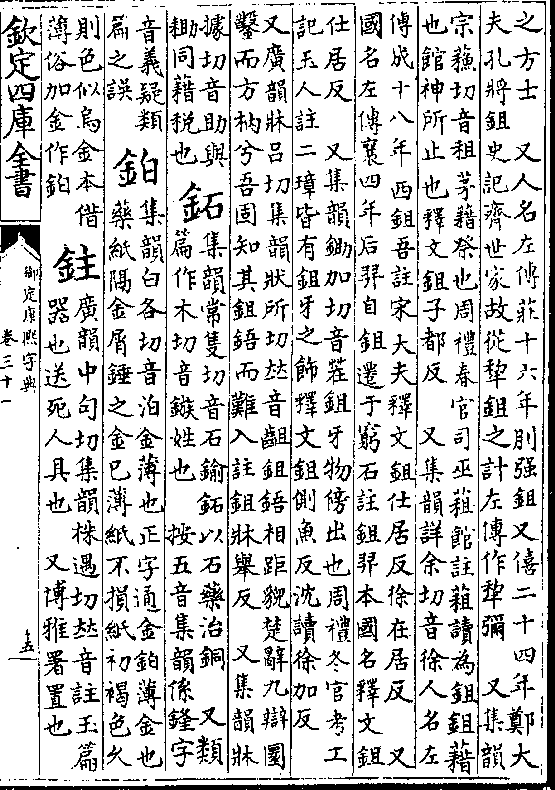 之方士　又人名左傳莊十六年刖强鉏又僖二十四年鄭大
夫孔將鉏史記齊世家故從犂鉏之計左傳作犂彌　又集韻
宗蘇切音租茅藉祭也周禮春官司巫蒩館註蒩讀為鉏鉏藉
也館神所止也釋文鉏子都反　又集韻詳余切音徐人名左
傳成十八年西鉏吾註宋大夫釋文鉏仕居反徐在居反　又
國名左傳襄四年后羿自鉏遷于窮石註鉏羿本國名釋文鉏
仕居反　又集韻鋤加切音茬鉏牙物傍出也周禮冬官考工
記玉人註二璋皆有鉏牙之飾釋文鉏側魚反沈讀徐加反
又廣韻牀呂切集韻狀所切𠀤音齟鉏鋙相距貌楚辭九辯圜
鑿而方枘兮吾固知其鉏鋙而難入註鉏牀舉反　又集韻牀
據切音助與
耡同藉稅也
鉐
集韻常隻切音石鍮鉐以石藥治銅　又類
篇作木切音鏃姓也　按五音集韻係鏠字
音義疑類
篇之誤
鉑
集韻白各切音泊金薄也正字通金鉑薄金也
藥紙隔金屑錘之金已薄紙不損紙初褐色久
則色似烏金本借
薄俗加金作鉑
鉒
廣韻中句切集韻株遇切𠀤音註玉篇
器也送死人具也　又博雅署置也
欽定四庫全書
御定康熙字典
卷三十一
十五